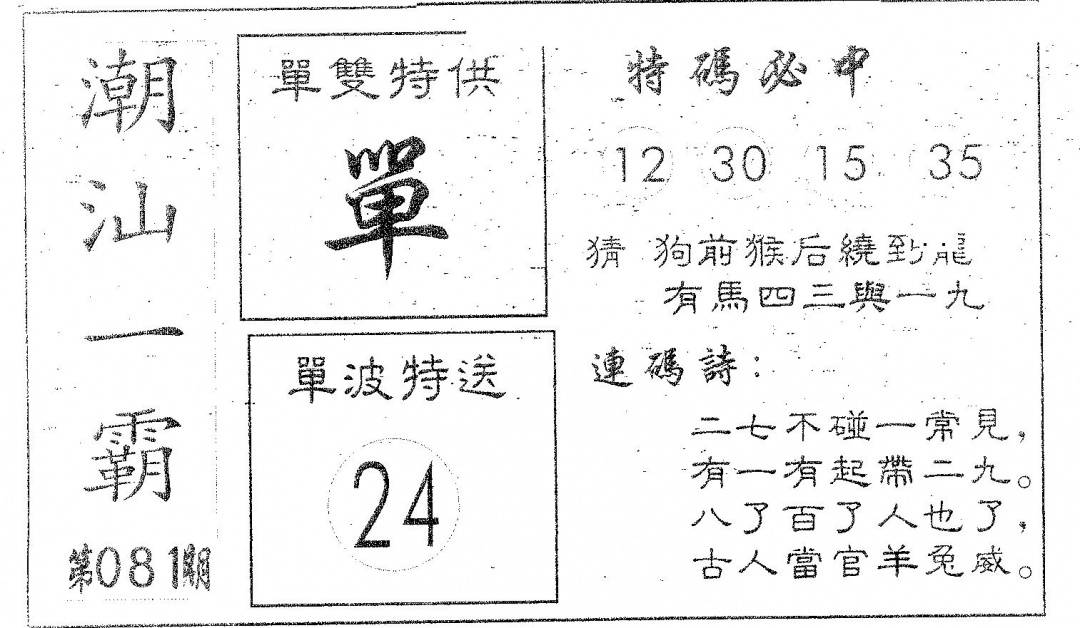 潮汕一霸
第081期
單雙特供
單
單波特送
24
特碼必中
12 30 15 35
猜 狗前猴后繞到龍
有馬四三與一九
連碼詩：
二七不碰一常見，
有一有起帶二九。
八了百了人也了，
古人當官羊兔威。